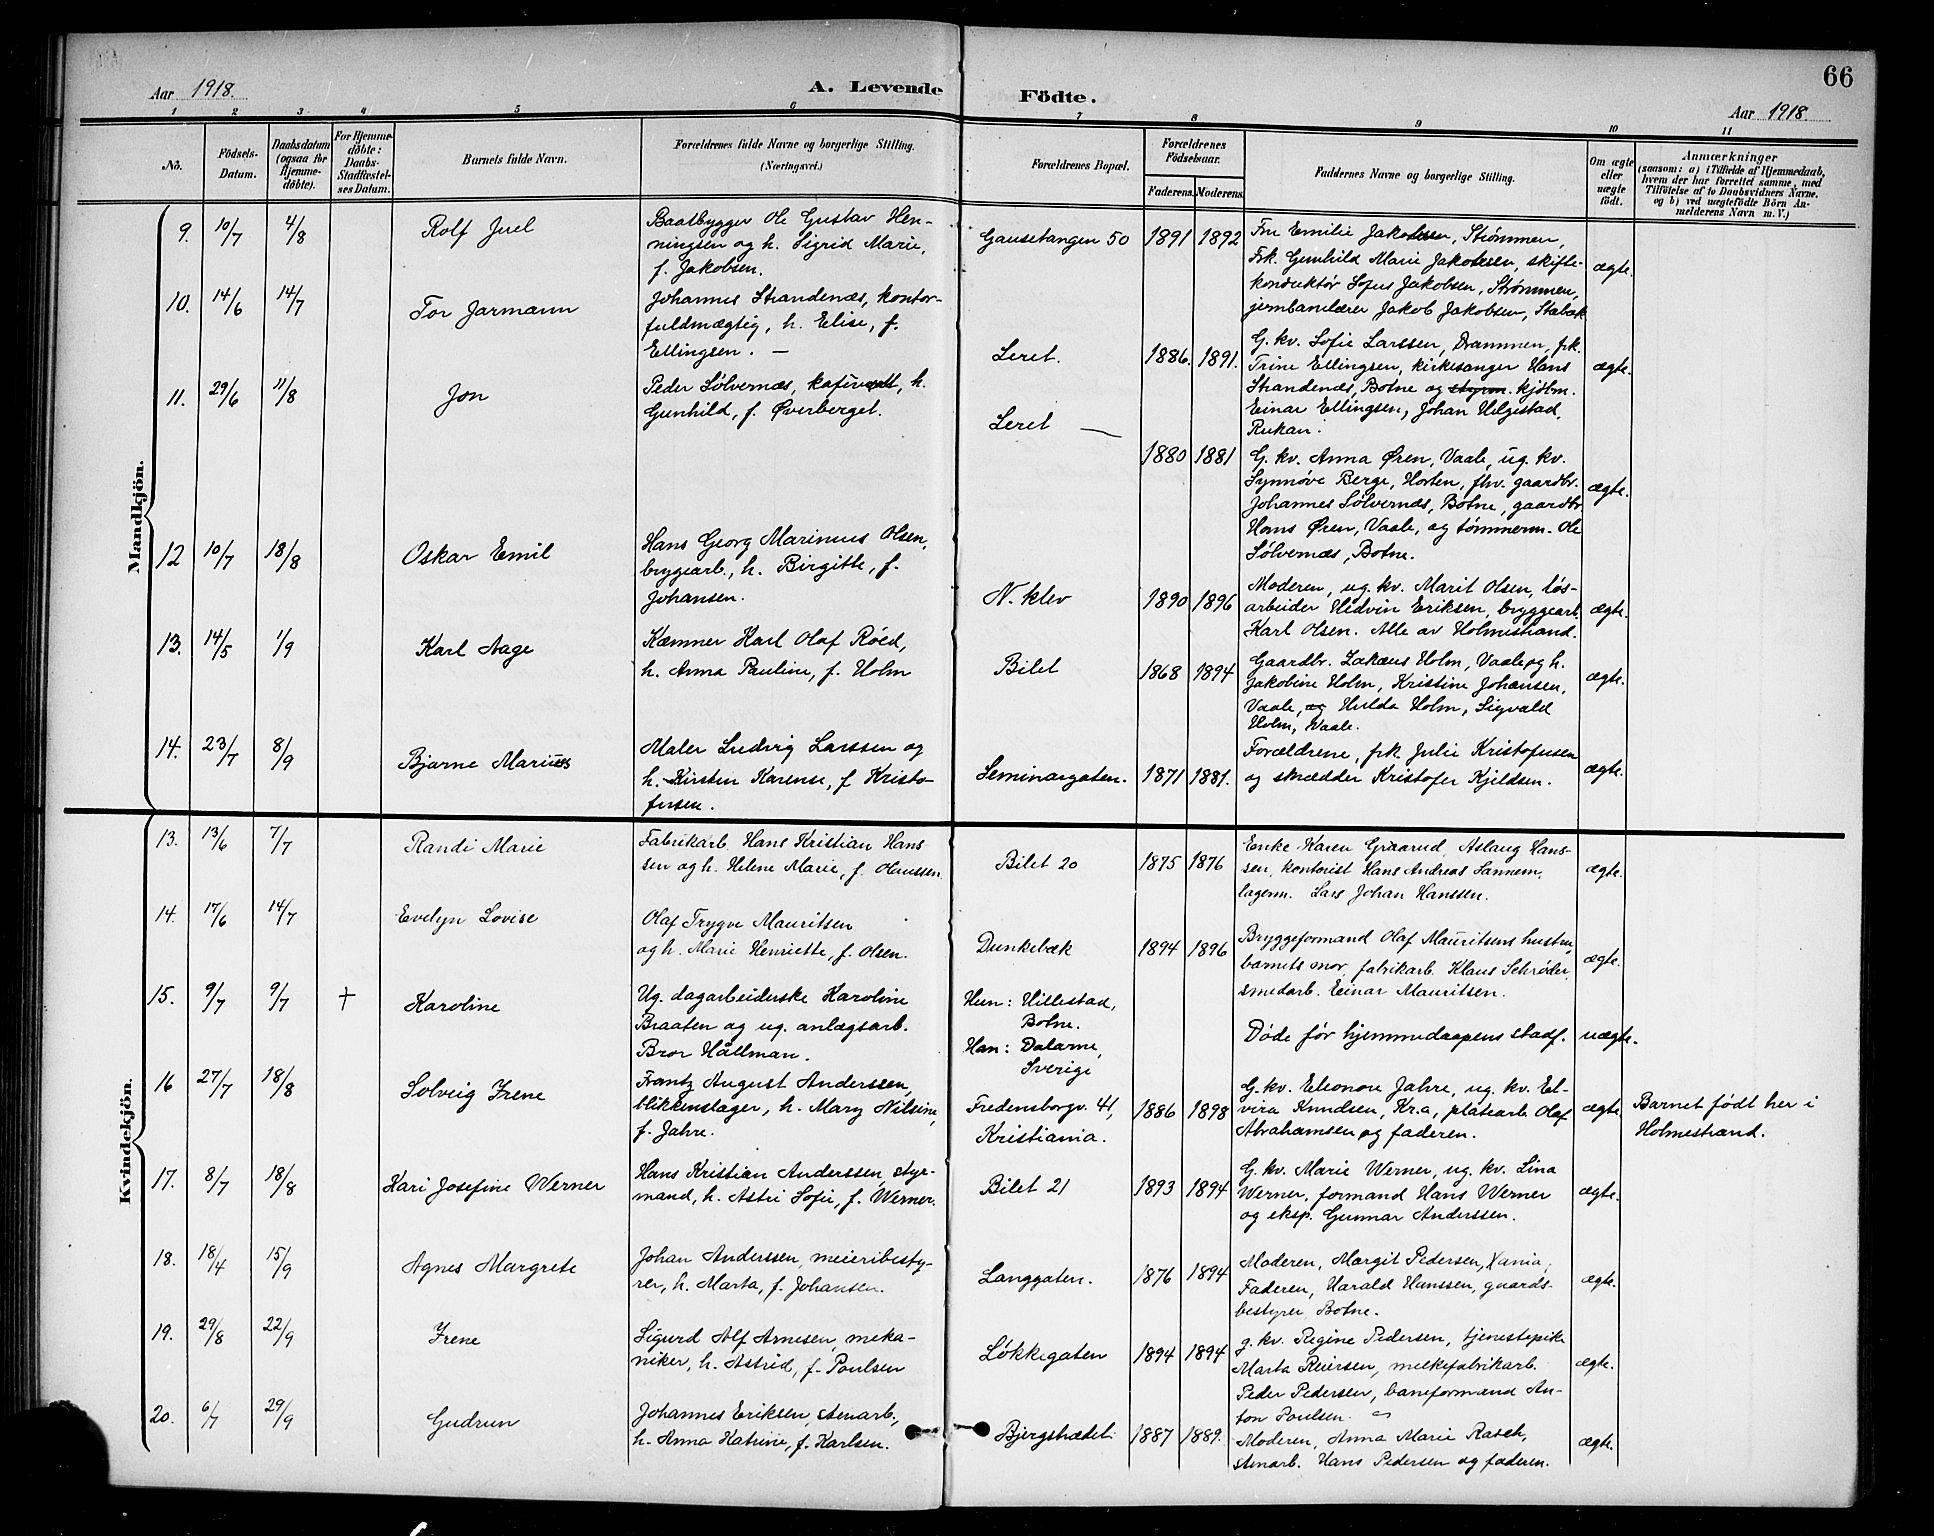 66
Aar 1918.
A. Levende Födte.
Aar 1918.
1 2 3 4 5 6 7 8 9 10 11
No.
Födsels-
Datum.
Daabsdatum
(ogsaa for
Hjemme-
döbte).
For Hjemme-
döbte:
Daabs-
Stadfæstel-
ses Datum.
Barnets fulde Navn.
Forældrenes fulde Navne og borgerlige Stilling.
(Næringsvei.)
Forældrenes Bopæl.
Forældrenes
Födselsaar.
Faderens. Moderens.
Faddernes Navne og borgerlige Stilling.
Om ægte
eller
uægte
födt.
Anmærkninger
(saasom: a) i Tilfælde af Hjemmedaab,
hvem der har forrettet samme, med
Tilföielse af to Daabsvidners Navne,
og b) ved uægtefödte Börn An-
melderens Navn m. V.)
Mandkjön.
9. 10/7 4/8 Rolf Juel
Baatbygger Ole Gustav Hen-
ningsen og h. Sigrid Marie,
f. Jakobsen.
Gausetangen 50 1891 1892
Fru Emilie Jakobsen, Strømmen,
Frk. Gunhild Marie Jakobsen, skifte-
konduktør Sofus Jakobsen, Strømmen,
jernbanelærer Jakob Jakobsen, Stabæk
ægte.
10. 14/6 14/7 Tor Jarmann
Johannes Strandenæs, kontor-
fuldmægtig, h. Elise, f.
Ellingsen. —
Leret. 1886. 1891.
G. kv. Sofie Larssen, Drammen, frk.
Trine Ellingsen, kirkesanger Hans
Strandenæs, Botne og styrm. kjøbm.
Einar Ellingsen, Johan Helgestad,
Rukan.
ægte.
11. 29/6 11/8 Jon
Peder Sølvernæs, kafévært, h.
Gunhild, f. Øverberget.
Leret — 1880 1881
G. kv. Anna Øren, Vaale, ug. kv.
Synnøve Berge, Horten, fhv. gaardbr.
Johannes Sølvernæs, Botne, gaardbr
Hans Øren, Vaale, og tømmerm. Ole
Sølvernæs, Botne.
ægte.
12 10/7 18/8 Oskar Emil
Hans Georg Marinius Olsen,
brygearb., h. Birgitte, f.
Johansen.
N. klev 1890 1896
Moderen, ug. kv. Marit Olsen, løs-
arbeider Hedvin Eriksen, bryggearb.
Karl Olsen. Alle av Holmestrand.
ægte.
13. 14/5 1/9 Karl Aage
Kæmner Karl Olaf Røed,
h. Anna Pauline, f. Holm
Bilet 1868 1894
Gaardbr. Zakæus Holm, Vaale og h.
Jakobine Holm, Kristine Johansen,
Vaale, og Hulda Holm, Sigvald
Holm, Vaale.
ægte.
14. 23/7 8/9 Bjarne Marius
Maler Ludvig Larssen og
h. Kirsten Karense, f Kristo-
fersen.
Seminargaten. 1871 1881.
Forældrene, frk. Julie Kristofersen
og skrædder Kristofer Kjeldsen.
ægte.
Kvindekjön.
13. 13/6 7/7 Randi Marie
Fabrikarb. Hans Kristian Hans
sen og h. Helene Marie, f. Olaussen.
Bilet 20 1875 1876
Enke Karen Graarud, Aslaug Hans-
sen, kontorist Hans Andreas Sannem,
lagerm. Lars Johan Hanssen.
ægte.
14. 17/6 14/7 Evelyn Lovise
Olaf Trygve Mauritsen
og h. Marie Henriette, f. Olsen.
Dunkebæk 1894 1896
Bryggeformand Olaf Mauritsens hustru,
barnets mor, fabrikarb. Klaus Schrøder,
smedarb. Einar Mauritsen.
ægte.
15. 9/7 9/7 † Karoline
Ug. dagarbeiderske Karoline
Braaten og ug. anlægsarb.
Bror Hållman.
Hun: Hillestad,
Botne.
Han: Dalarne,
Sverige
Døde før hjemmedaapens stadf. uægte.
16 27/7 18/8 Solveig Irene
Frantz August Anderssen,
blikkenslager, h. Mary Nilsine,
f. Jahre.
Fredensborgv. 41,
Kristiania.
1886 1898
G. kv. Eleonore Jahre, ug. kv. El-
vira Knudsen, Kr.a, platearb Olaf
Abrahamsen og faderen.
ægte
Barnet født her i
Holmestrand.
17. 8/7 18/8 Kari Josefine Werner
Hans Kristian Anderssen, styr-
mand, h. Astri Sofie, f. Werner.
Bilet 21 1893 1894
G. kv. Marie Werner, ug. kv. Lina
Werner, formand Hans Werner
og eksp. Gunnar Anderssen.
ægte.
18. 18/4 15/9 Agnes Margrete
Johan Anderssen, meieribesty-
rer, h. Marta, f. Johansen.
Langgaten. 1876 1894
Moderen, Margit Pedersen, Xania,
Faderen, Harald Hanssen, gaards-
bestyrer Botne.
ægte.
19. 29/8 22/9 Irene
Sigurd Alf Arnesen, meka-
niker, h. Astrid, f. Poulsen
Løkkegaten 1894 1894
g. kv. Regine Pedersen, tjenestepike
Marta Reiersen, melkefabrikarb.
Peder Pedersen, baneformand An-
ton Poulsen.
ægte.
20. 6/7 29/9 Gudrun
Johannes Eriksen, stenarb.,
h. Anna Katrine, f. Karlsen.
Bjergstrædet 1887 1889.
Moderen, Anna Marie Rasch,
stenarb. Hans Pedersen og faderen.
ægte.